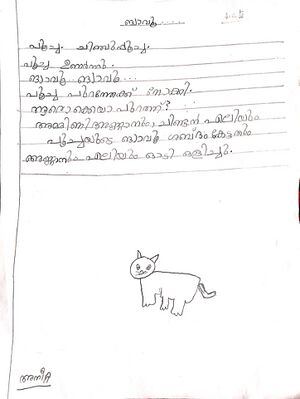 ബാവൂ......
പൂച്ച. ചിഞ്ചുപ്പൂച്ച.
പൂച്ച ഉണർന്നു.
ങ്യാവൂ ങ്യാവൂ...
പൂച്ച പുറത്തേക്ക് നോക്കി.
ആരൊക്കെയാ പുറത്ത്?
അമ്മിണിഅണ്ണാനും, ചിണ്ടൻ എലിയും
പൂച്ചയുടെ ങ്യാവൂ ശബ്ദം കേട്ടതും
അണ്ണാനും എലിയും ഓടി ഒളിച്ചു.